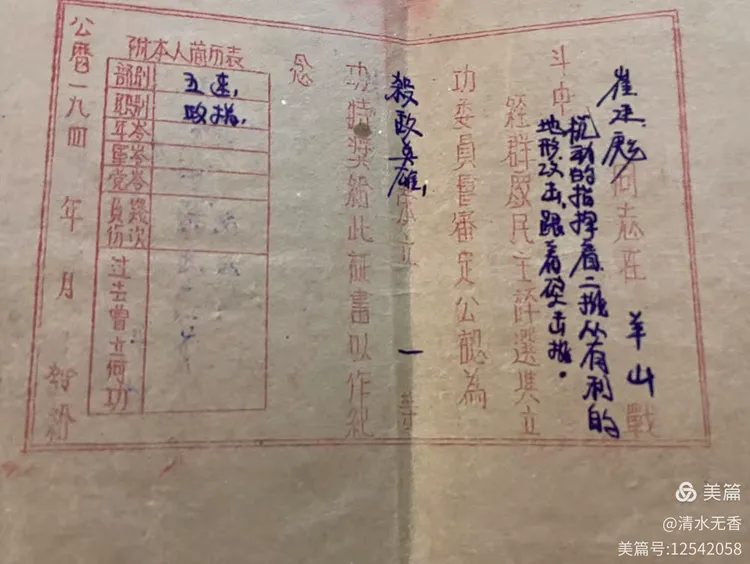 崔同志在 羊山 戰
机动的指挥着二排从有利的
地形攻击.跟着突击排.
斗中
經群衆民主評選與立
功委員會審定公認為
殺敌英雄,
立 一 等
功特獎給此証書以作紀
念
附本人简历表
部别 五连,
职别 政指,
年岺
軍岺
党岺
負伤 幾次
过去曾立何功
公曆一九四 年 月
美篇
@清水无香
美篇号:12542058